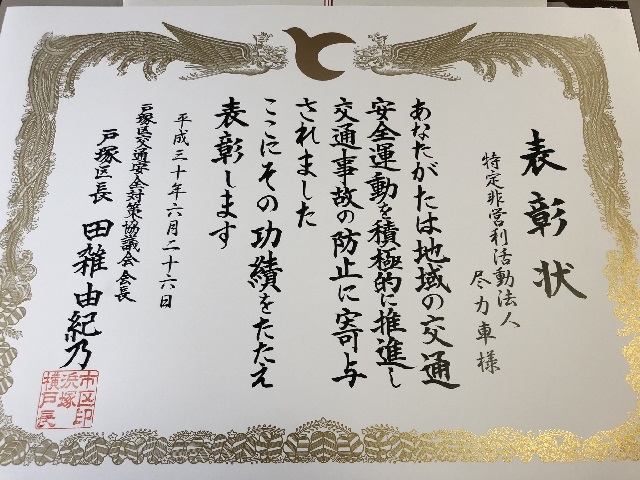 表彰状
特定非営利活動法人
尽力車様
あなたがたは地域の交通
安全運動を積極的に推進し
交通事故の防止に寄与
されました
ここにその功績をたたえ
表彰します
平成三十年六月二十六日
戸塚区交通安全対策協議会会長
戸塚区長 田雑由紀乃
市区印
浜塚
横戸長